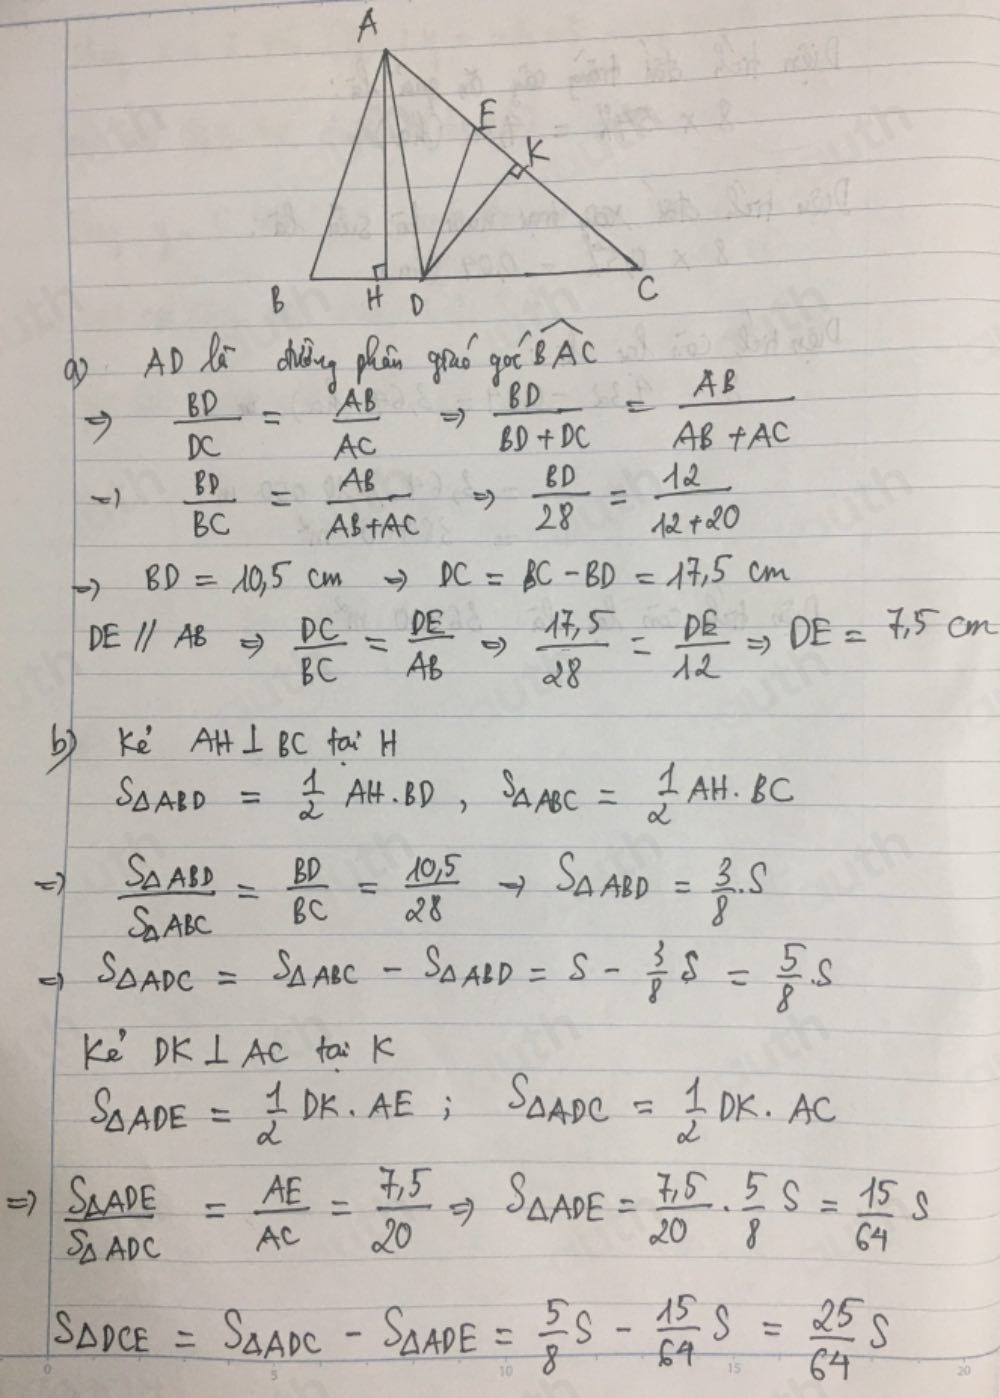 A
E
K
B H D C
a) AD là đường phân giác góc \widehat{BAC}
=> BD/DC = AB/AC => BD/(BD + DC) = AB/(AB + AC)
=> BD/BC = AB/(AB+AC) => BD/28 = 12/(12+20)
=> BD = 10,5 cm => DC = BC - BD = 17,5 cm
DE // AB => DC/BC = DE/AB => 17,5/28 = DE/12 => DE = 7,5 cm
b) Kẻ AH ⊥ BC tại H
SΔABD = 1/2 AH.BD , SΔABC = 1/2 AH.BC
=> SΔABD/SΔABC = BD/BC = 10,5/28 => SΔABD = 3/8.S
=> SΔADC = SΔABC - SΔABD = S - 3/8 S = 5/8.S
Kẻ DK ⊥ AC tại K
SΔADE = 1/2 DK.AE ; SΔADC = 1/2 DK.AC
=> SΔADE/SΔADC = AE/AC = 7,5/20 => SΔADE = 7,5/20 . 5/8 S = 15/64 S
SΔDCE = SΔADC - SΔADE = 5/8 S - 15/64 S = 25/64 S
0 5 10 15 20